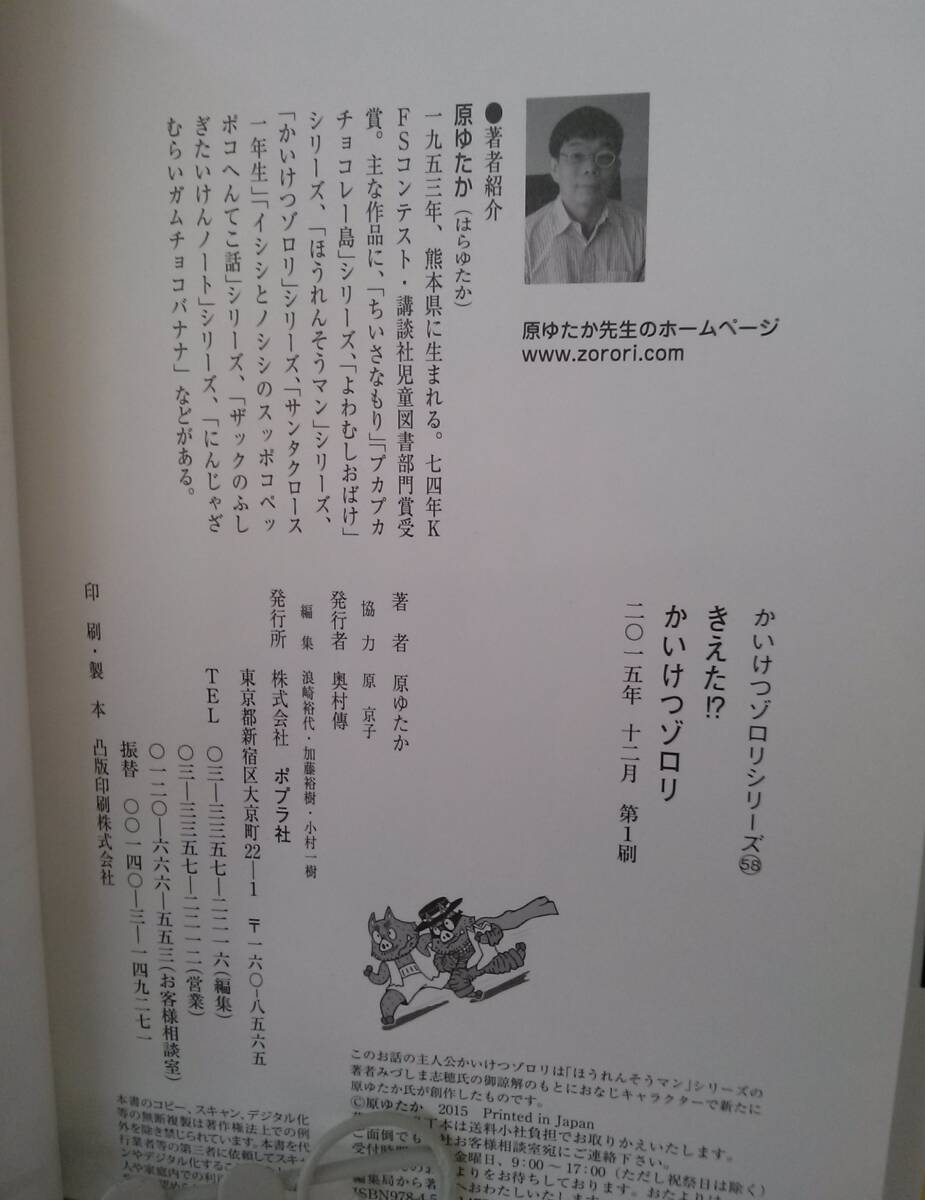 ●著者紹介
原ゆたか(はらゆたか)
一九五三年、熊本県に生まれる。七四年K
FSコンテスト・講談社児童図書部門賞受
賞。主な作品に、「ちいさなもり」「プカプカ
チョコレー島」シリーズ、「よわむしおばけ」
シリーズ、「ほうれんそうマン」シリーズ、
「かいけつゾロリ」シリーズ、「サンタクロース
一年生」「イシシとノシシのスッポコペッ
ポコへんてこ話」シリーズ、「ザックのふし
ぎたいけんノート」シリーズ、「にんじゃざ
むらいガムチョコバナナ」などがある。
原ゆたか先生のホームページ
www.zorori.com
かいけつゾロリシリーズ58
きえた!?
かいけつゾロリ
二〇一五年 十二月 第1刷
著者 原ゆたか
協力 原 京子
発行者 奥村傳
編集 浪崎裕代・加藤裕樹・小村一樹
発行所 株式会社 ポプラ社
東京都新宿区大京町22―1 〒一六〇―八五六五
TEL 〇三―三三五七―二二一六(編集)
〇三―三三五七―二二一二(営業)
〇一二〇―六六六―五五三(お客様相談室)
振替 〇〇一四〇―三―一四九二七一
印刷・製本 凸版印刷株式会社
このお話の主人公かいけつゾロリは「ほうれんそうマン」シリーズの
著者みづしま志穂氏の御諒解のもとにおなじキャラクターで新たに
原ゆたか氏が創作したものです。
©原ゆたか 2015 Printed in Japan
丁本は送料小社負担でお取りかえいたします。
ご面倒でも 社お客様相談室宛にご連絡下さい。
受付時間 金曜日、9:00～17:00(ただし祝祭日は除く)
よりをお待ちしております。おたよりは
編集局から著 へおわたしいたします
ISBN978-4-5
本書のコピー、スキャン、デジタル化
等の無断複製は著作権法上での例
外を除き禁じられています。本書を代
行業者等の第三者に依頼してスキャ
ンやデジタル化するこ
人や家庭内での利用